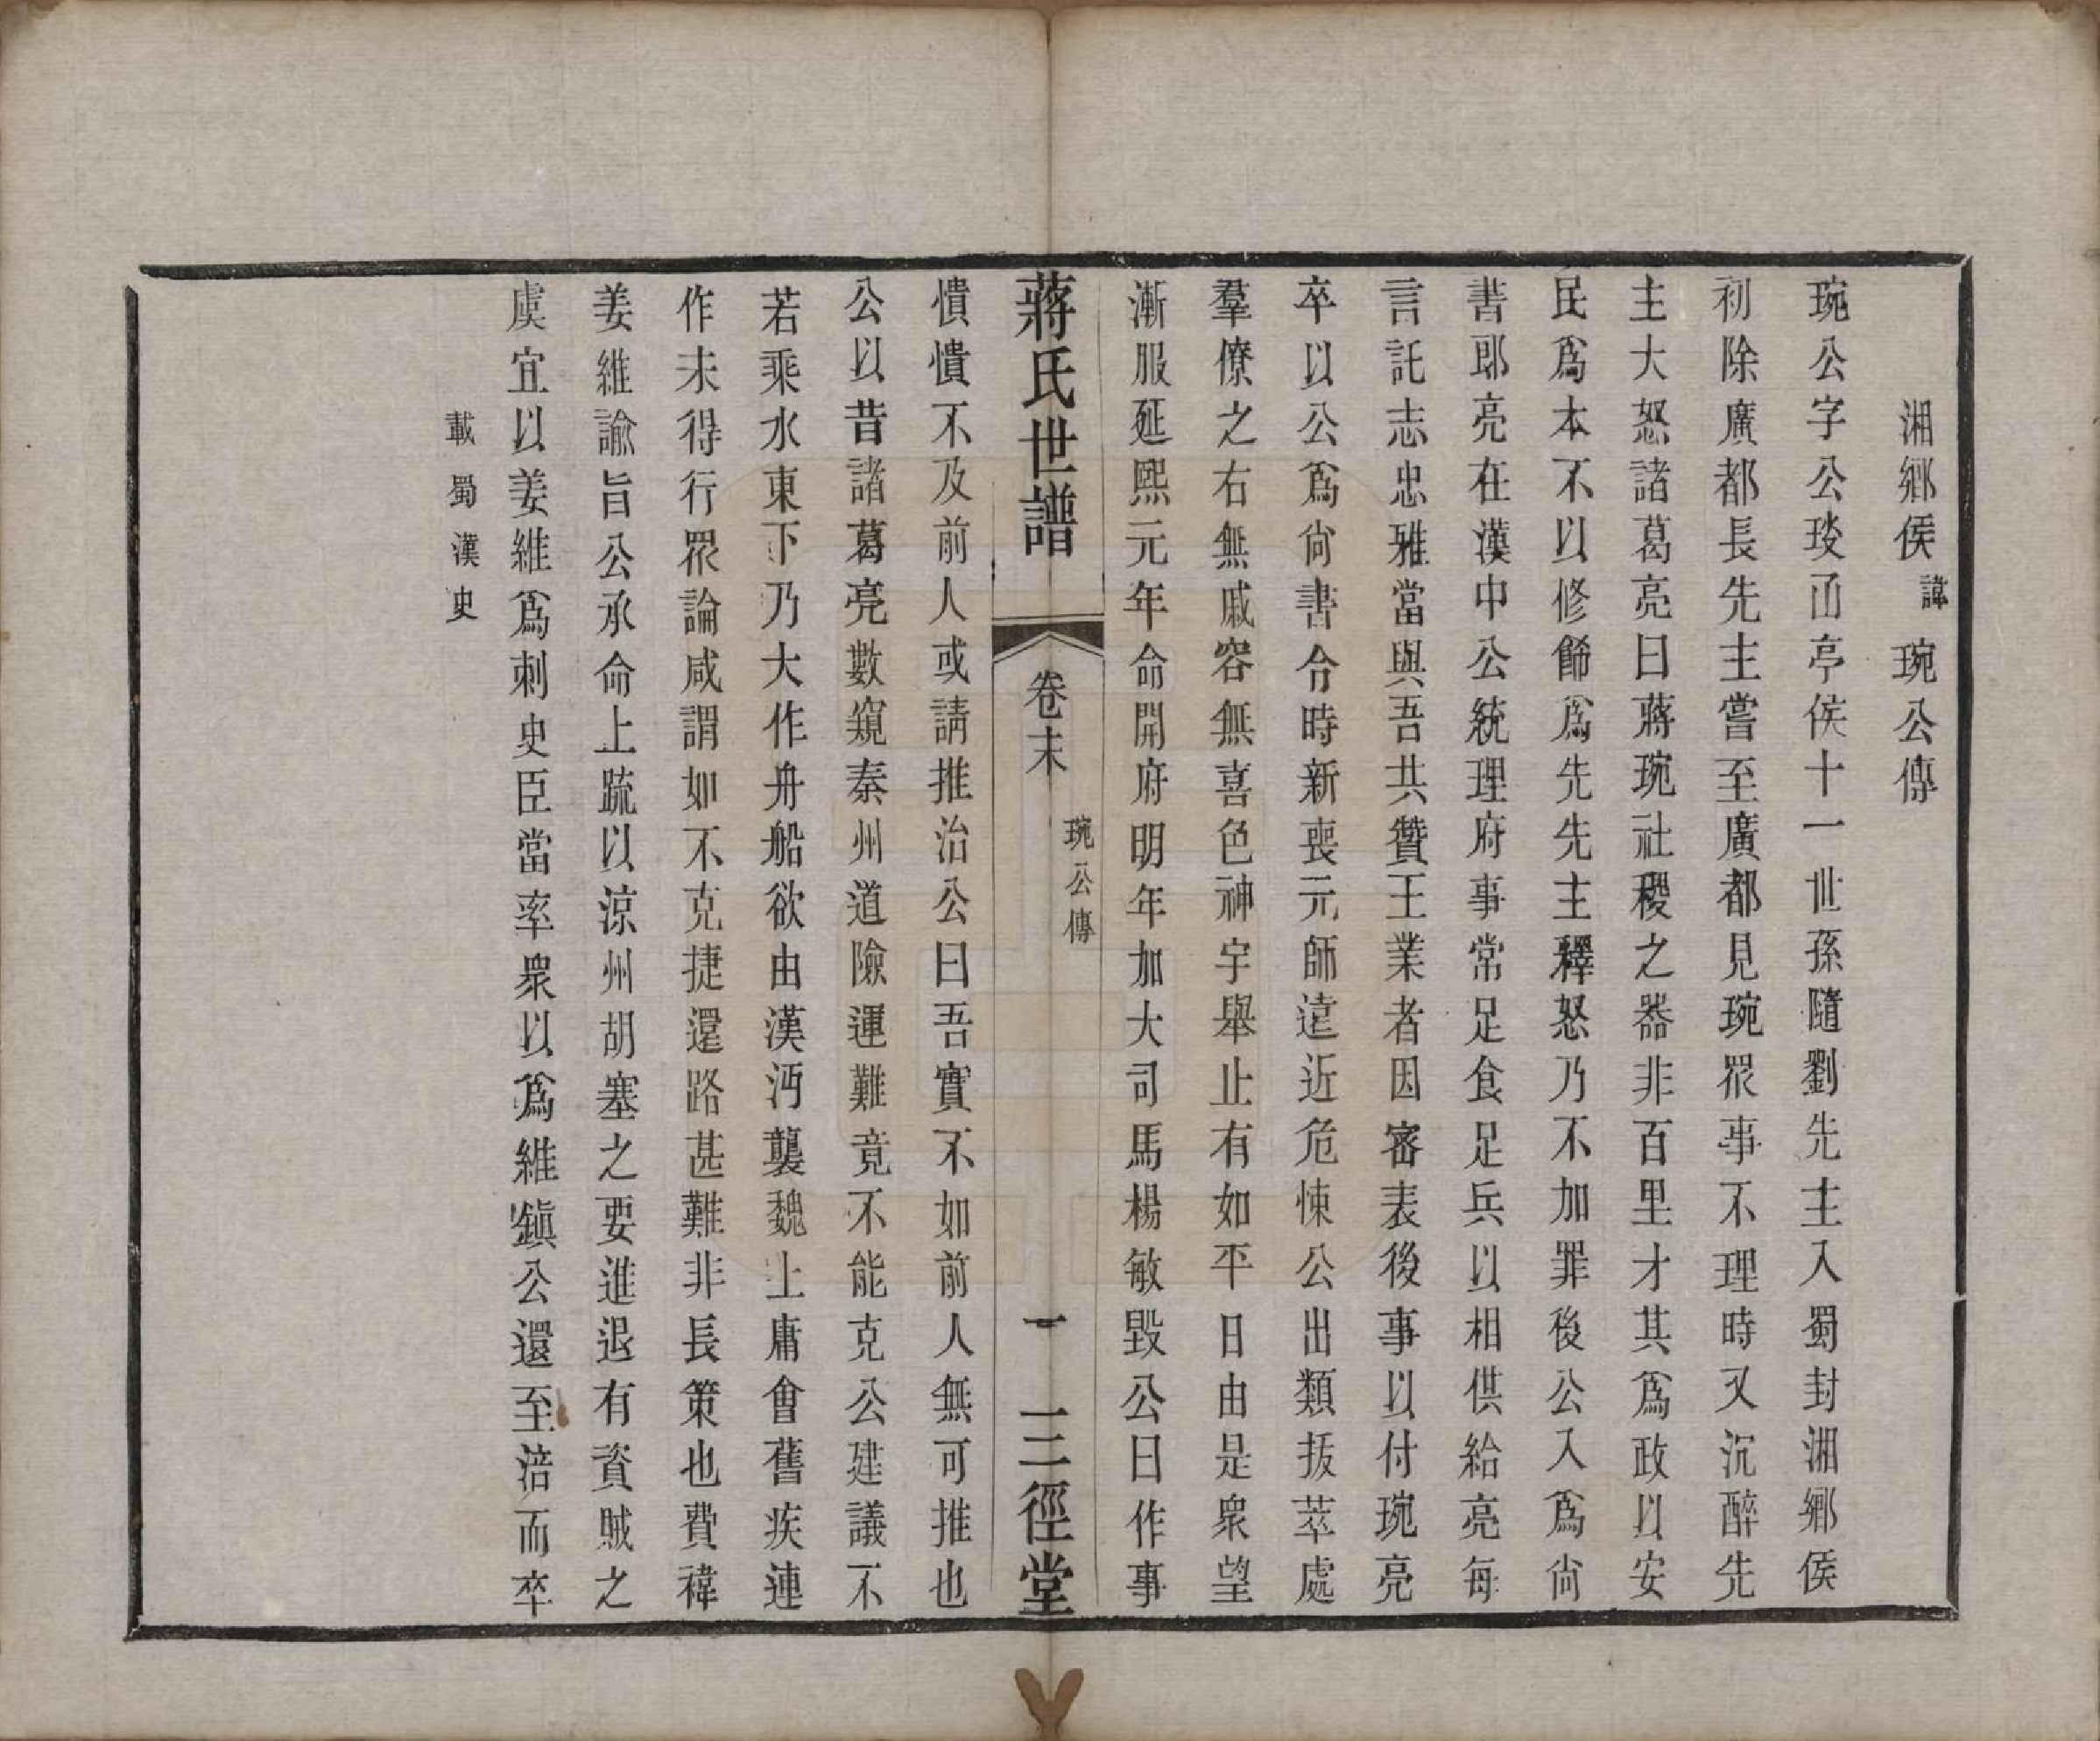 湘鄉侯諱琬公傳
琬公字公琰㐭亭侯十一世孫隨劉先主入蜀封湘鄉侯
初除廣都長先主嘗至廣都見琬眾事不理時又沉醉先
主大怒諸葛亮曰蔣琬社稷之器非百里才其爲政以安
民爲本不以修飾爲先先主釋怒乃不加罪後公入爲尙
書郎亮在漢中公統理府事常足食足兵以相供給亮每
言託志忠雅當與吾共贊王業者因審表後事以付琬亮
卒以公爲尙書令時新喪元師遠近危悚公出類拔萃處
羣僚之右無戚容無喜色神宇舉止有如平日由是衆望
漸服延熙元年命開府明年加大司馬楊敏毀公曰作事
蔣氏世譜
卷末
琬公傳
一
三徑堂
憒憒不及前人或請推治公曰吾實不如前人無可推也
公以昔諸葛亮數窺秦州道險運難竟不能克公建議不
若乘水東下乃大作舟船欲由漢沔襲魏上庸會舊疾連
作未得行眾論咸謂如不克捷還路甚難非長策也費禕
姜維諭旨公承命上疏以涼州胡塞之要進退有資賊之
虞宜以姜維爲刺史臣當率衆以爲維鎮公還至涪而卒
載蜀漢史